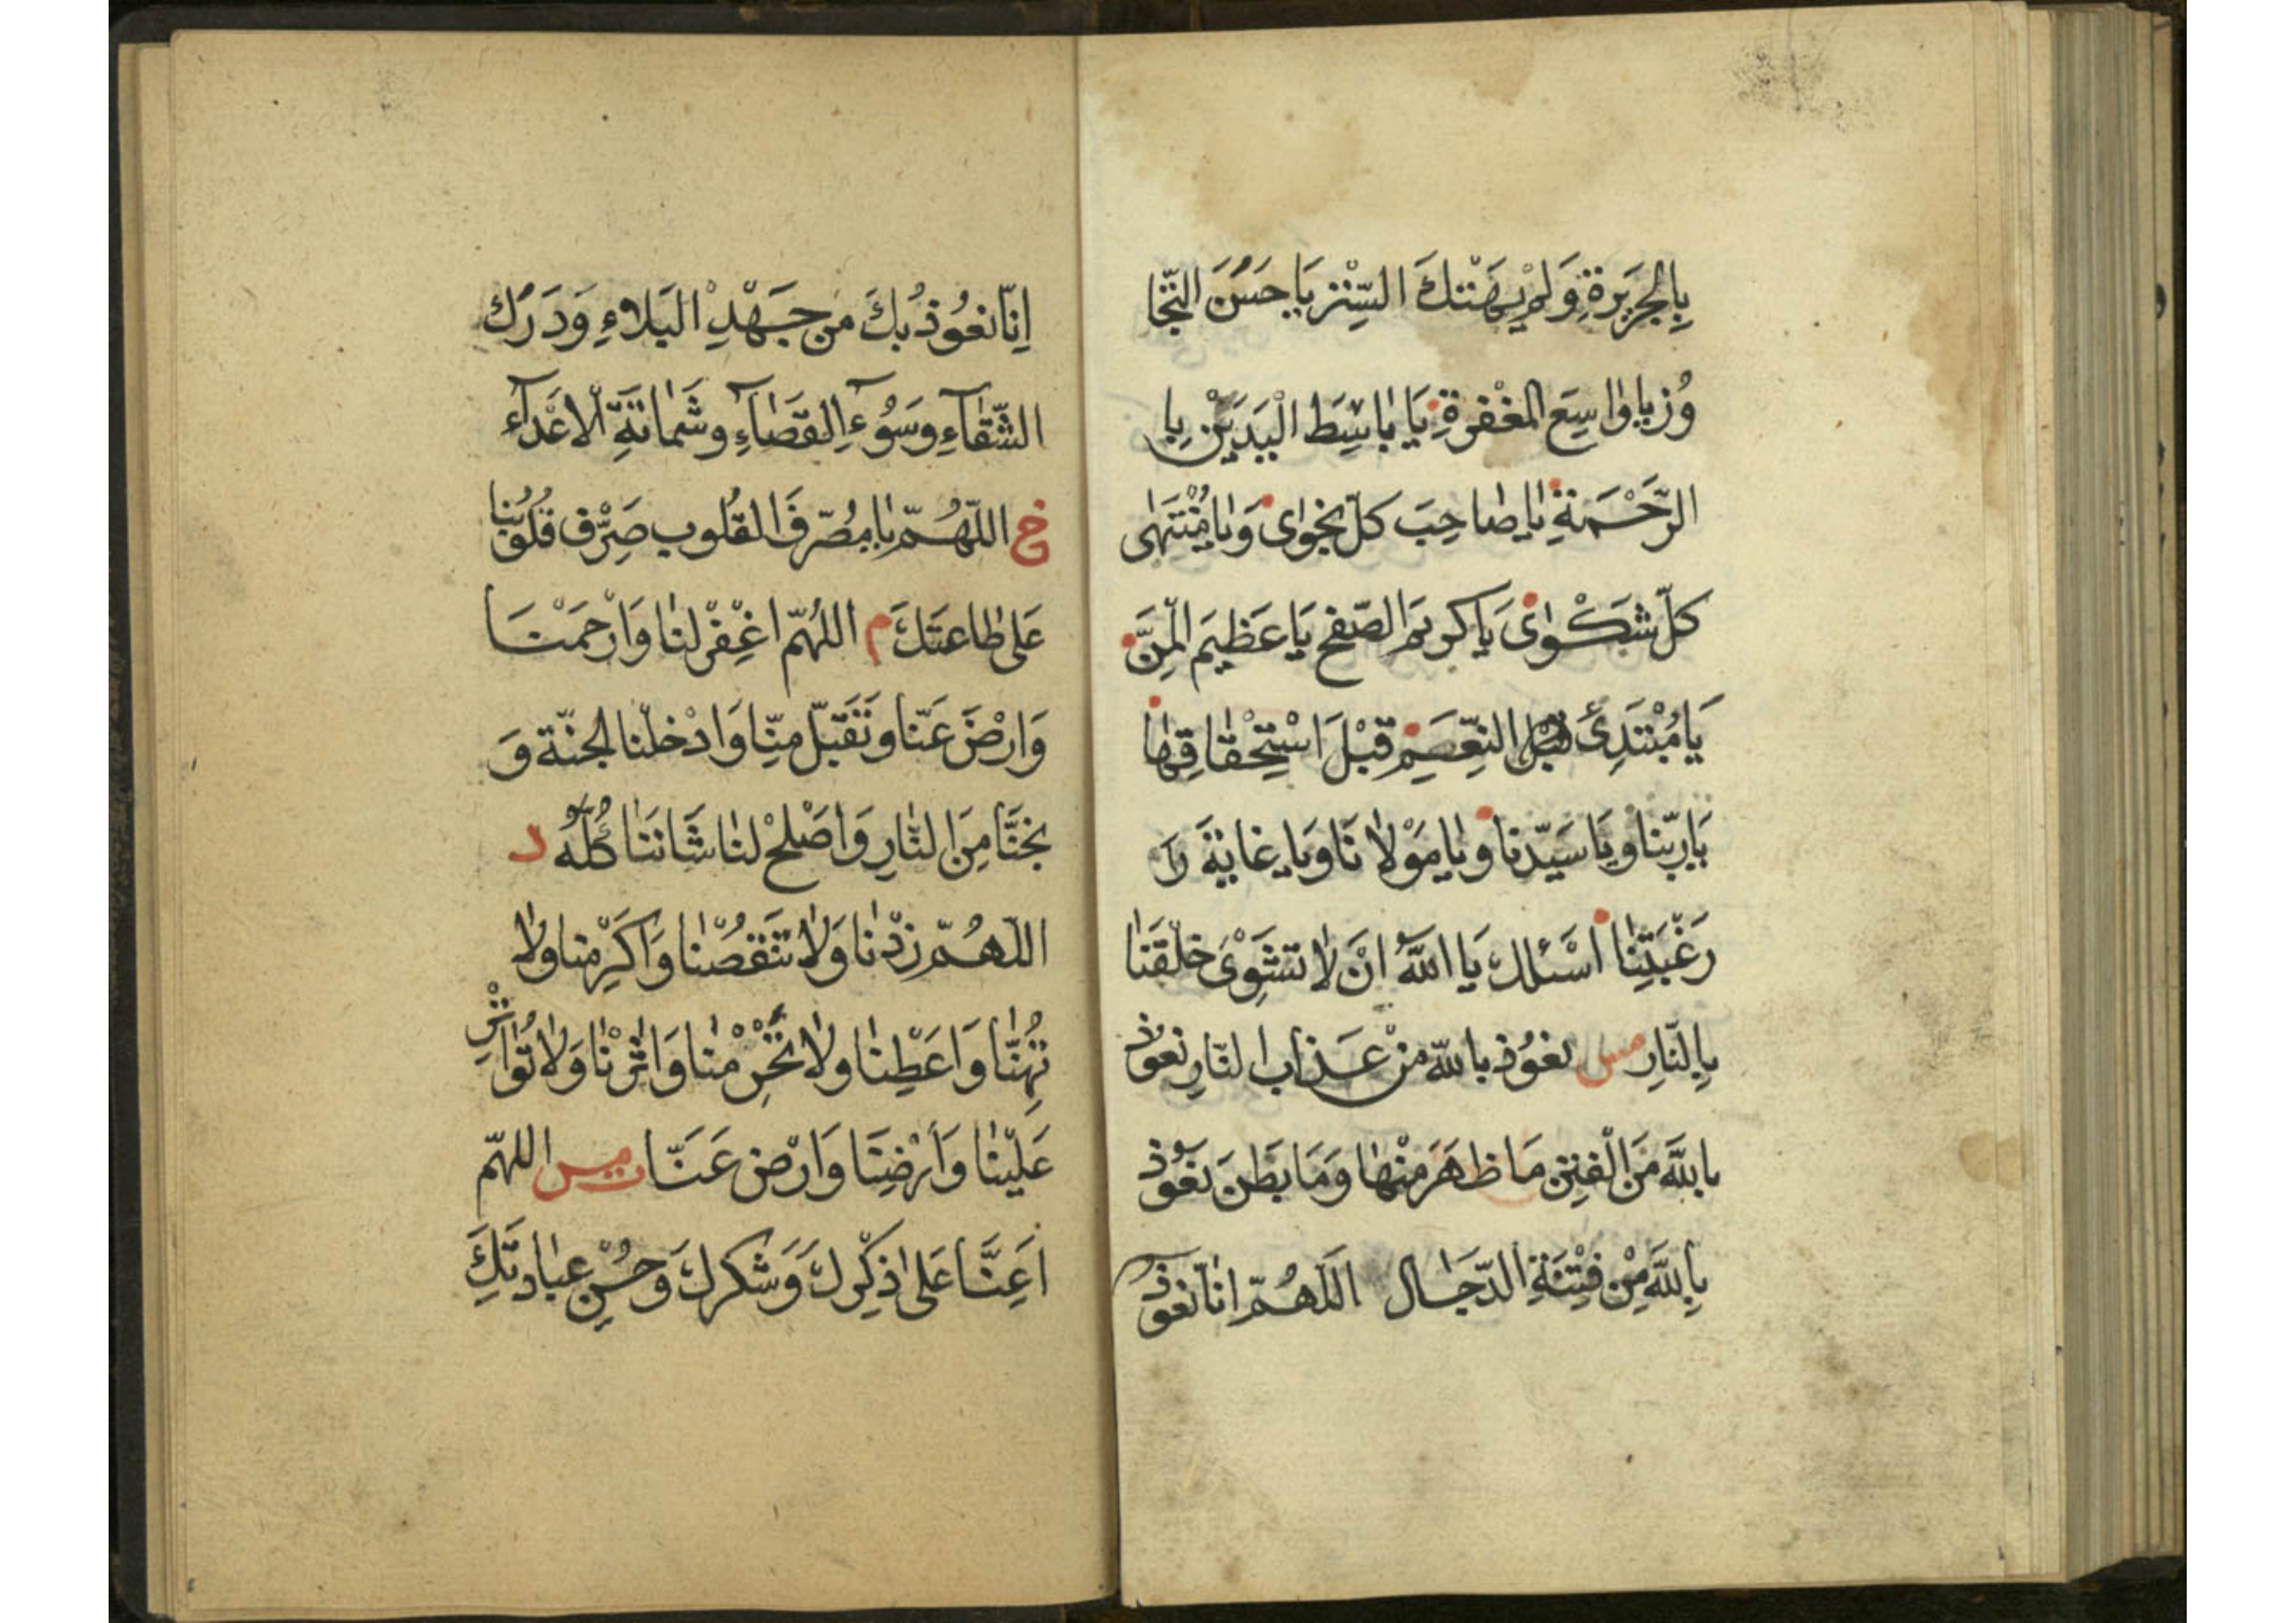 بِالجَرِيرَةِ وَلَمْ يَهْتِكَ السِّتْرَ يَا حَسَنَ التَّجَا
وُزِ يا واسِعَ المَغْفِرَةِ يَا بَاسِطَ الْيَدَيْنِ بِا
الرَّحْمَةِ يا صاحِبَ كلّ نجوای وَيا مُنْتَهٰی
كلّ شَكْوای يَا كريم الصّفح يَا عَظِيمَ الْمَنِّ
يَا مُبْتَدِئَ النِّعَمِ قَبْلَ اسْتِحْقَاقِهٰا
يَا رَبّنا ويَا سَيّدنا ويا مَوْلانَا وَيا غايةَ رَ
رَغْبَتِنٰا اسْئلك يَا اللّٰهُ انْ لا تشْوِیَ خلْقَنٰا
بِالنّارِ مس نعُوْذ باللّٰه منْ عَذاب النّارِ نعوُذ
باللَّه مِنَ الْفِتن مَا ظَهَرَ مِنْهٰا وَمَا بَطَنَ نعُوْذ
بِاللَّهِ مِنْ فِتْنَةِ الدّجّال اللّهُمّ انّا نعوذ
اِنّا نعُوْذُ بكَ مِن جَهْدِ البَلاءِ وَدَرْك
الشّقٰآءِ وسَوُءِ القضٰآءِ وشَمٰاتَةِ الاعْدآءِ
خ اللّهُمّ يا مصَرّفَ القلُوب صَرِّف قلُوُبُنا
عَلی طاعتَكَ م اللهُمّ اغْفِرْ لنا وَارْحَمْنَا
وَارْضَ عَنّا وتَقَبّل مِنّا وَادْخلنا الجنّة وَ
نجنَّا مِنَ النّارِ وَاصْلحْ لنا شَاننَا كُلّهُ د
اللّهُمّ زدْنا وَلا تَنْقُصْنا وَاكرِمْنا ولا
تُهِنّا وَاعَطْنا ولا تَحْرِمْنا وَاثِرْنا وَلا تُواثِرْ
عَلَيْنا وَاَرْضِنَا وَارْضَ عَنّا مس اللهمّ
اَعِنَّا عَلی ذِكْرِكَ وَشكرِكَ وَحُسْنِ عبادتِكَ